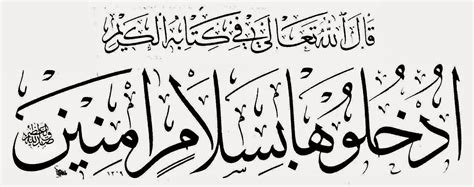 قَالَ اللّٰهُ تَعَالَىٰ فِي كِتَابِهِ الْكَرِيمِ
اُدْخُلُوهَا بِسَلَامٍ اٰمِنِينَ